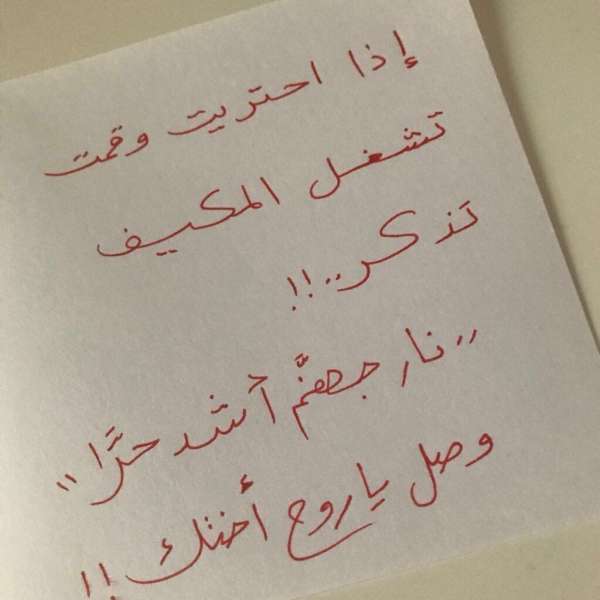 إذا احتريت وقمت
تشغل المكيف
تذكر..!!
"نار جهنَّم أشد حرًّا"
وصل ياروح أختك !!